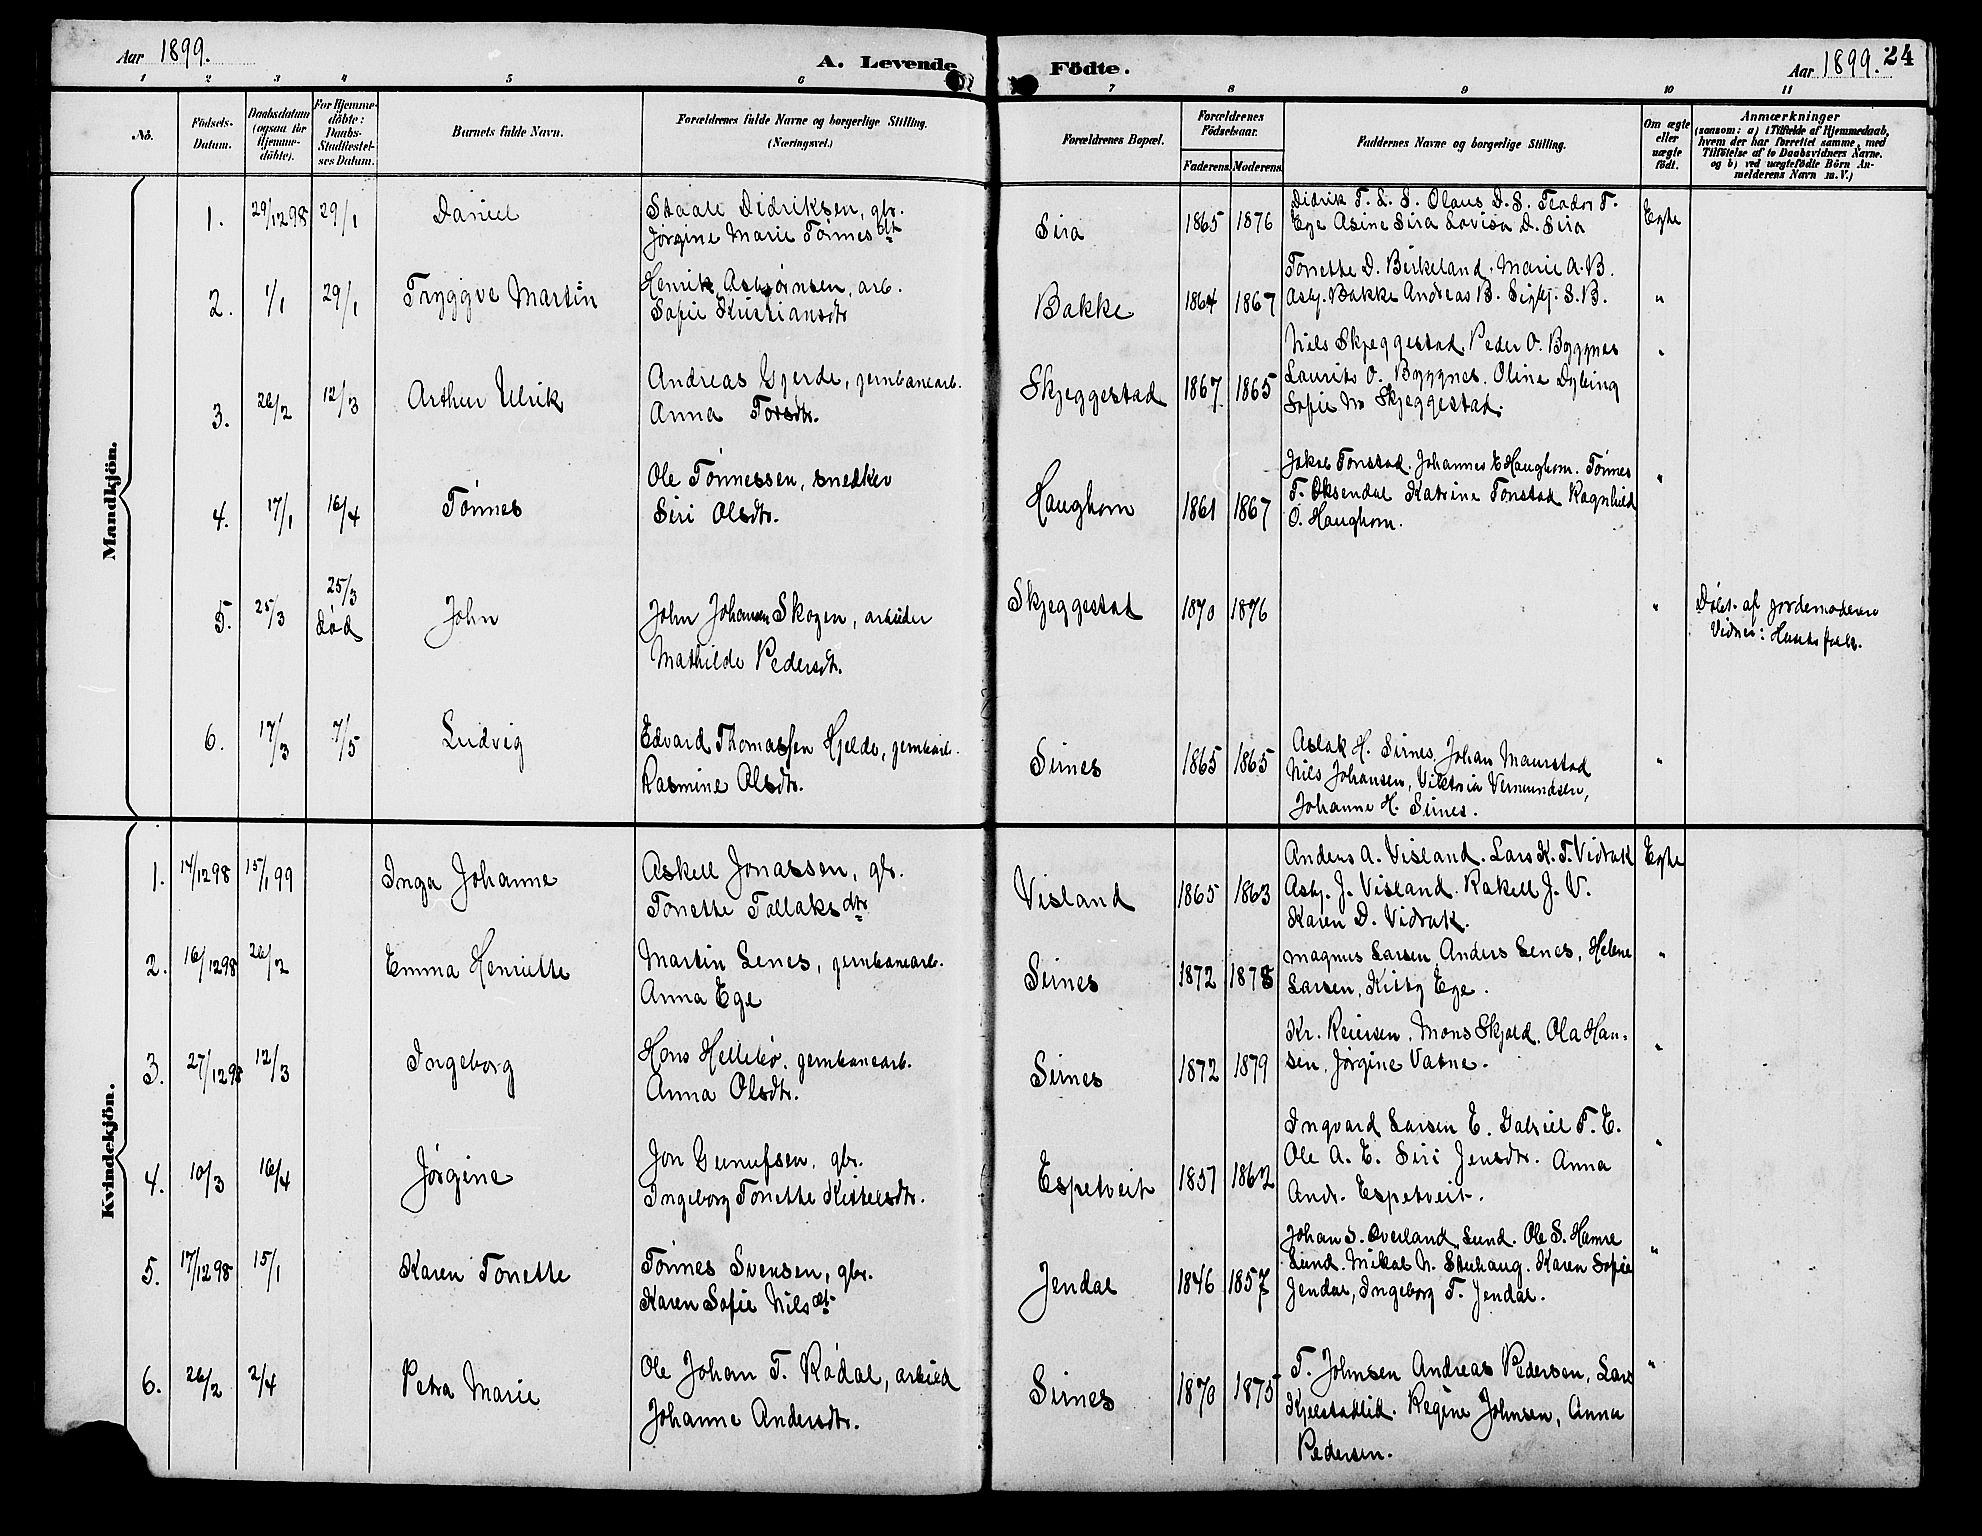 Aar 1899.
A. Levende
Födte.
Aar 1899. 24
1 2 3 4 5 6 7 8 9 10 11
No.
Födsels-
Datum.
Daabsdatum
(ogsaa for
Hjemme-
döbte).
For Hjemme-
döbte:
Daabs-
Stadfæstel-
ses Datum.
Barnets fulde Navn.
Forældrenes fulde Navne og borgerlige Stilling.
(Næringsvei.)
Forældrenes Bopæl.
Forældrenes
Födselsaar.
Faderens Moderens
Faddernes Navne og borgerlige Stilling.
Om ægte
eller
uægte
födt.
Anmærkninger
(saasom: a) i Tilfælde af Hjemmedaab,
hvem der har forrettet samme, med
Tilföielse af to Daabsvidners Navne.
og b) ved uægtefödte Börn An-
melderens Navn m. V.)
Mandkjön.
1. 29/12 98 29/1 Daniel
Staale Didriksen, gbr.
Jørgine Marie Tønnesdt
Sira 1865 1876
Didrik T. S. S. Olaus D. S. Teodor T.
Ege Asine Sira Lovisa D. Sira
Egte
2. 1/1 29/1 Tryggve Martin
Henrik Asbjørnsen, arb.
Sofie Kristiansdtr
Bakke 1864 1867
Tonette D. Birkeland. Marie A. B.
Asbj. Bakke Andreas B. Sigbj. S. B.
"
3. 26/2 12/3 Arthur Ulrik
Andreas Gjerde, jernbanearb.
Anna Torsdtr.
Skjeggestad 1867 1865
Nils Skjeggestad. Peder O. Byggnes
Laurits O. Byggnes. Oline Dybing
Sofie M. Skjeggestad.
"
4. 17/1 16/4 Tønnes
Ole Tønnessen, snedker
Siri Olsdtr.
Haughom 1861 1867
Jakob Tonstad. Johannes E Haughom. Tønnes
T. Øksendal Katrine Tonstad Ragnhild
O. Haughom.
"
5. 25/3 25/3
død
John
John Johansen Skogen, arbeider
Mathilde Pedersdtr.
Skjeggestad 1870 1876
"
Døbt af jordemoderen
Vidner: Husets folk.
6. 17/3 7/5 Ludvig
Edvard Thomassen Hjelde, jernbarb.
Rasmine Olsdtr.
Sirnes 1865 1865
Aslak H. Sirnes, Johan Maurstad
Nils Johansen, Viktoria Vermundsen,
Johanne H. Sirnes.
"
Kvindekjön.
1. 14/12 98 15/1 99 Inga Johanne
Askell Jonassen, gbr.
Tonette Tallaksdtr
Visland 1865 1863
Anders A. Visland. Lars K. T. Vidrak
Asbj. J. Visland. Rakell J. V.
Karen D. Vidrak.
Egte
2. 16/12 98 26/2 Emma Henriette
Martin Lenes, jernbanearb.
Anna Ege
Sirnes 1872 1878
Magnus Larsen Anders Lenes, Helene
Larsen, Kitty Ege.
"
3. 27/12 98 12/3 Ingeborg
Hans Hellebø. jernbanearb.
Anna Olsdtr.
Sirnes 1872 1879
Kr. Reiersen, Mons Skjold. Ola Han-
sen, Jørgine Vatne.
"
4. 10/3 16/4 Jørgine
Jon Gunufsen, gbr.
Ingeborg Tonette Kittelsdtr.
Espetveit 1857 1862
Ingvard Larsen E. Gabriel T. E.
Ole A. E. Siri Jensdtr. Anna
Andr. Espetveit.
"
5. 17/12 98 15/1 Karen Tonette
Tønnes Svensen, gbr.
Karen Sofie Nilsdt.
Jendal 1846 1857
Johan S. Øverland, Lund. Ole S. Hamre
Lund. Mikal N. Stuhaug. Karen Sofie
Jendal, Ingeborg T. Jendal.
"
6. 26/2 2/4 Petra Marie
Ole Johan T. Rødal, arbeid
Johanne Andersdtr.
Sirnes 1870 1875
T. Johnsen Andreas Pedersen, Lars
Kjelstadlid. Regine Johnsen, Anna
Pedersen.
"